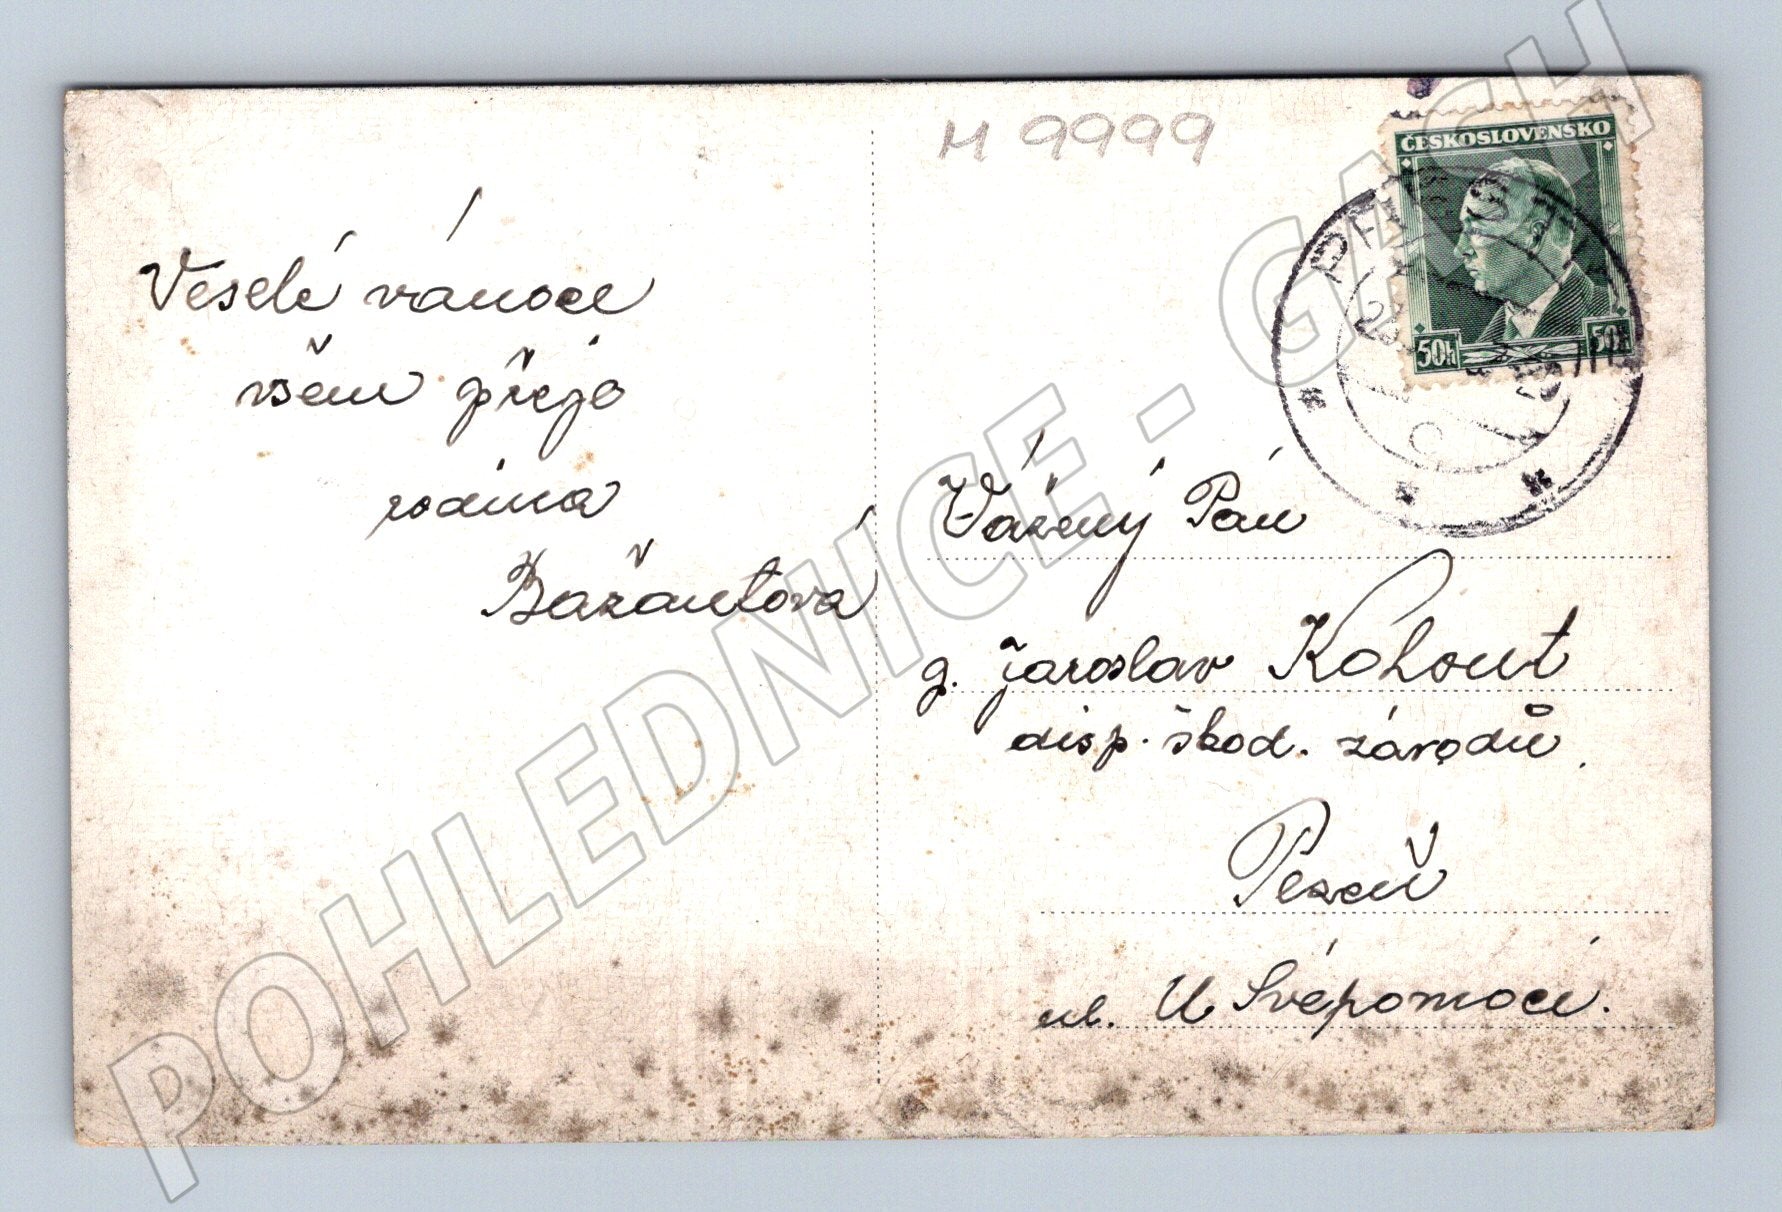 M 9999
ČESKOSLOVENSKO
50h 50h
Veselé vánoce
všem přeje
rodina
Bažantova
Vážený Pán
g. Jaroslav Kohout
disp. škod. závodů.
Plzeň
ul. U Svépomoci.
POHLEDNICE - GACH